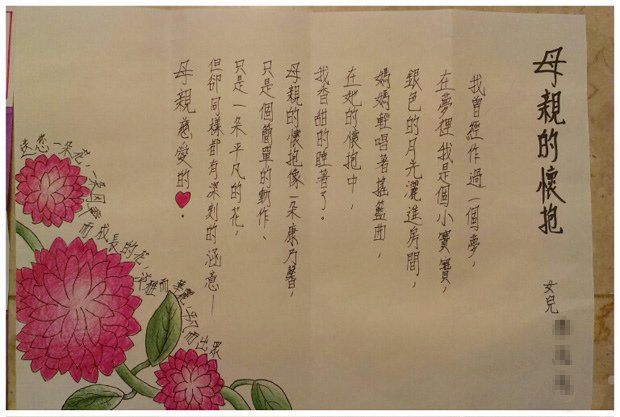 母親的懷抱
女兒
我曾經作過一個夢，
在夢裡我是個小寶寶，
銀色的月光灑進房間，
媽媽輕唱著搖籃曲，
在她的懷抱中，
我香甜的睡著了。
母親的懷抱像一朵康乃馨，
只是個簡單的動作、
只是一朵平凡的花，
但卻同樣都有深刻的涵意—
母親慈愛的♥。
送您一朵花，一朵因愛
而成長的花，
而華麗，平凡而出眾